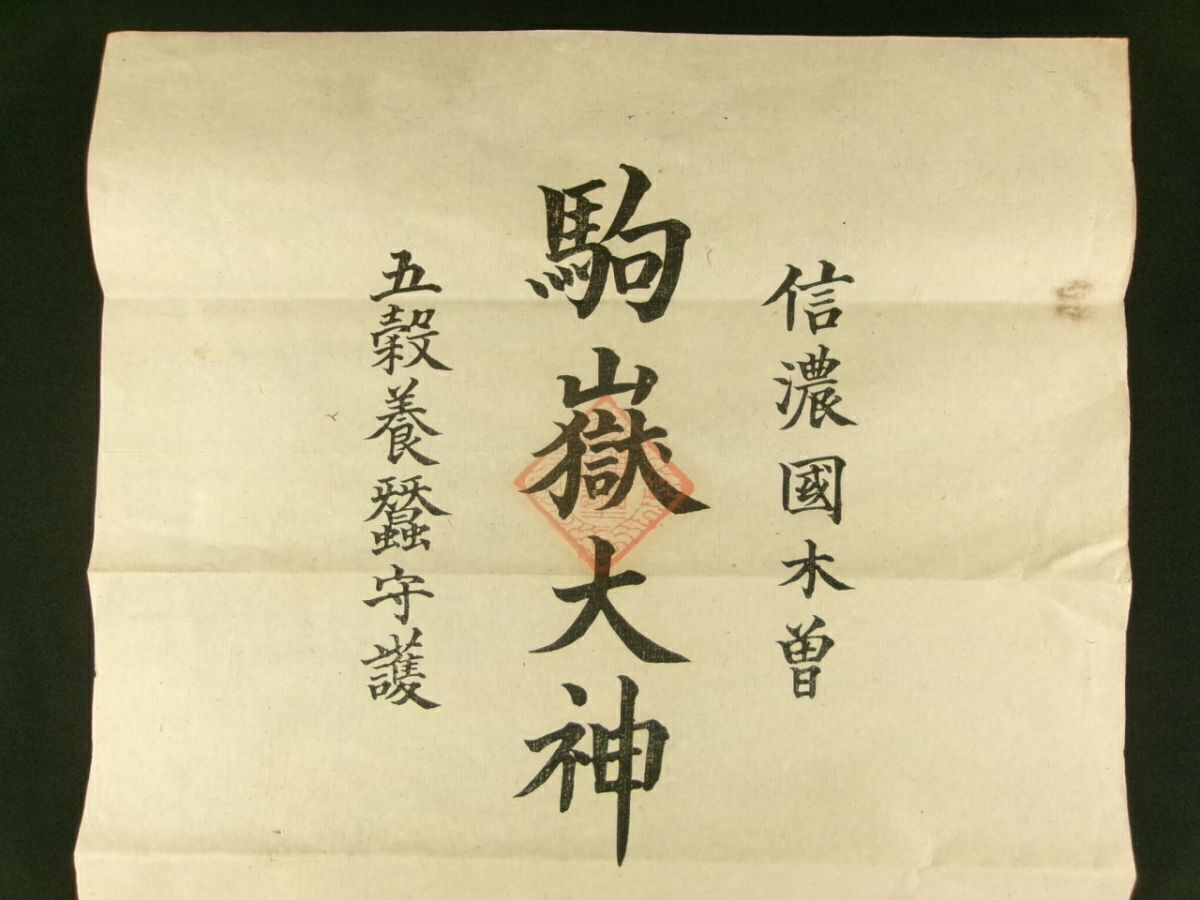 信濃國木曽
駒嶽大神
五穀養蠶守護